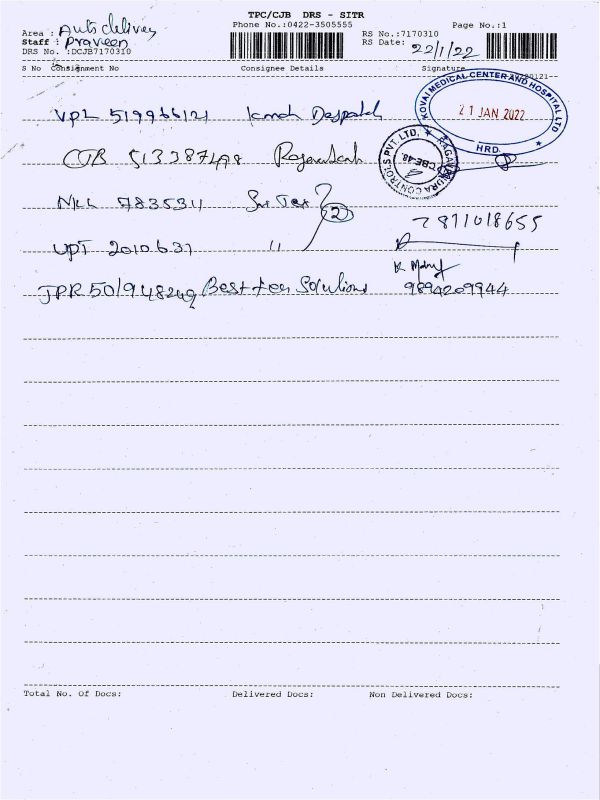 TPC/CJB DRS - SITR
Phone No.:0422-3505555
Page No.:1
Area : Auto delivery
Staff : Praveen
DRS No. :DCJB7170310
RS No.:7170310
RS Date: 22/1/22
S No Consignment No Consignee Details Signature
VPL 519966121 Kmch Despatch
KOVAI MEDICAL CENTER AND HOSPITAL LTD
21 JAN 2022
HRD.
CTB 513387498
CONTROLS PVT. LTD,
CBE-48.
NLL 7835311
2
7811018655
UPT 2010631 "
JPR 501948249 Best Solutions 9894209944
Total No. Of Docs: Delivered Docs: Non Delivered Docs: